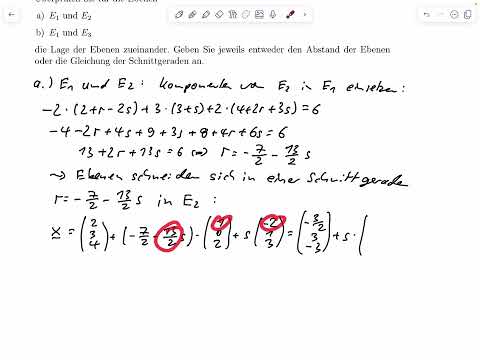 a) E₁ und E₂
b) E₁ und E₃
die Lage der Ebenen zueinander. Geben Sie jeweils entweder den Abstand der Ebenen
oder die Gleichung der Schnittgeraden an.
a.) E₁ und E₂: Komponenten von E₂ in E₁ einsetzen:
-2·(2+r-2s)+3·(3+s)+2·(4+2r+3s)=6
-4-2r+4s+9+3s+8+4r+6s=6
13+2r+13s=6 ⇔ r=-7/2-13/2 s
⇝ Ebenen schneiden sich in einer Schnittgerade
r=-7/2-13/2 s in E₂:
x=(2 3 4)+(-7/2-13/2 s)·(1 0 2)+s(-2 1 3)=(-3/2 3 -3)+s·(